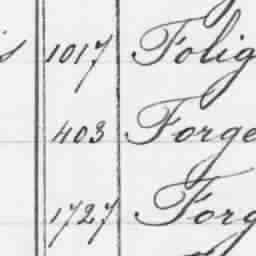 s 1017 Folig
403 Forge
1727 Forg